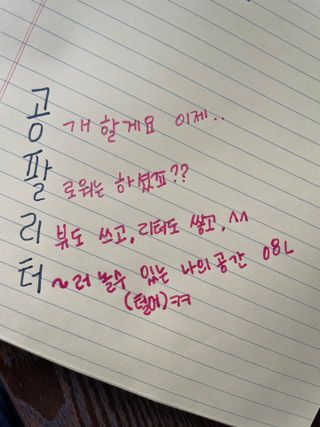 공 개 할게요 이제..
팔 로워는 하셨죠??
리 뷰도 쓰고, 리터도 쌓고, ^^
터 ~러 놀수 있는 나의 공간 08L
(털어)ㅋㅋ